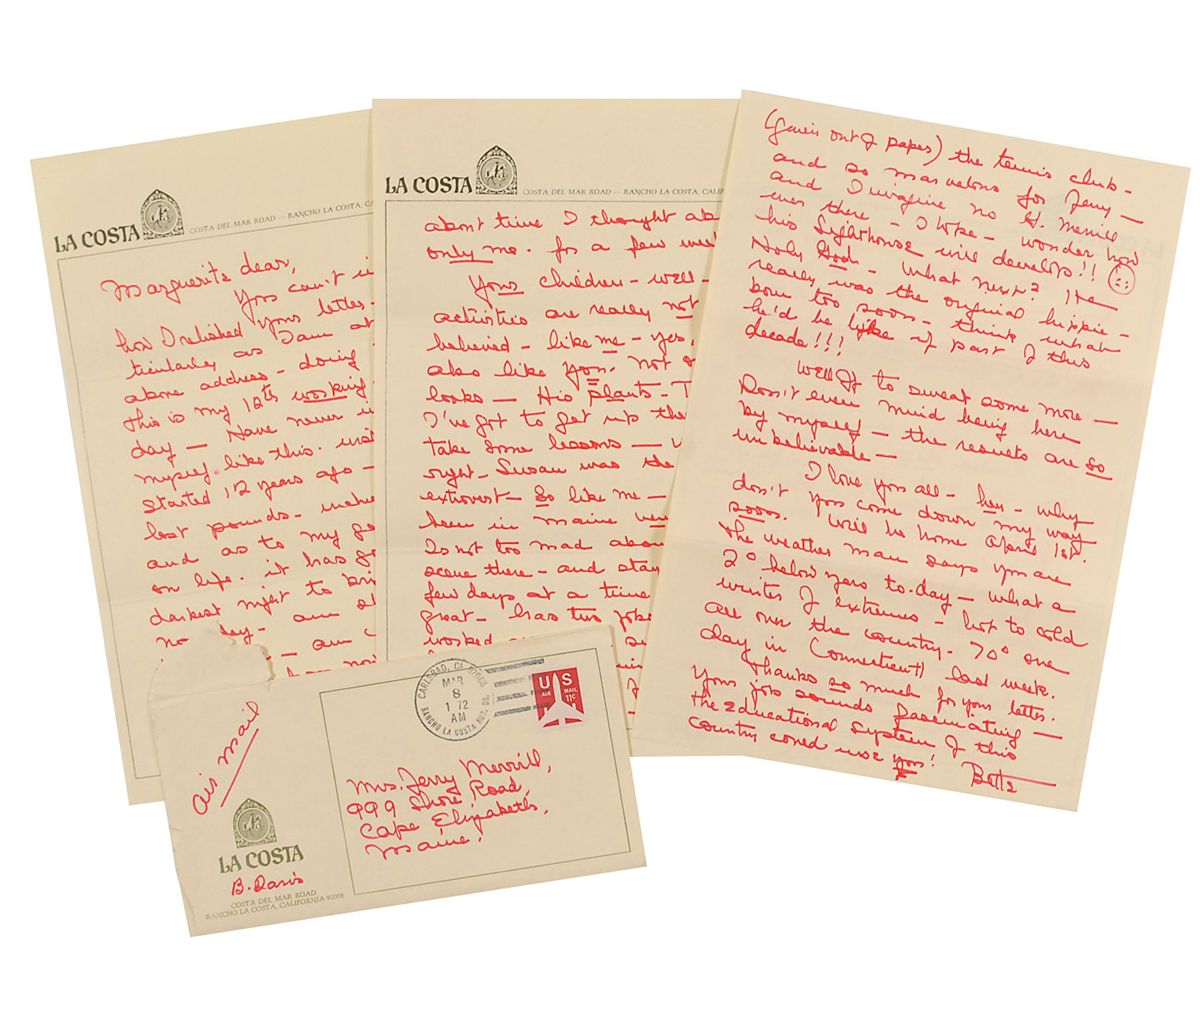 LA COSTA
COSTA DEL MAR ROAD — RANCHO LA COSTA, CA
Marguerite dear,
You can't i
how I relished your letter -
ticularly as I am at
above address - doing
this is my 12th working
day - Have never
myself like this.
started 12 years ago -
lost pounds -
and as to my
on life. it has
darkest night to bri
no day - am
- am
LA COSTA
COSTA DEL MAR ROAD — RANCHO LA COSTA, CALIF
about time I thought ab
only me. for a few wee
Your children - well -
activities are really not
believed - like me - yes,
also like you. Not
looks - His plants - T
I've got to get up the
take some lessons -
right - Susan was the
extrovert - So like me -
been in Maine
Is not too mad abou
scene there - and stay
few days at a time
great - has two
worked
(Gavin out of paper) the tennis club -
and so marvelous for Jerry -
and I imagine no G. Merrill
ever there - I joke - wonder how
his Lighthouse will develop!!
Holy God - What next? He
really was the original hippie -
born too soon - think what
he'd be like if part of this
decade!!!
Well off to sweat some more -
Don't even mind being here
by myself - the results are so
unbelievable -
I love you all - hey - why
don't you come down my way
soon. Will be home April 1st.
The weather man says you are
2° below zero to-day - what a
winter of extremes - hot to cold
all over the country - 70° one
day in Connecticut last week.
Thanks so much for your letter.
Your job sounds fascinating -
the Educational system of this
country could use you!
Bette
air mail
CARLSBAD, CA 92008
MAR
8
1972
AM
RANCHO LA COSTA
US
AIR MAIL
11c
Mrs. Jerry Merrill,
999 Shore Road,
Cape Elizabeth,
Maine.
LA COSTA
B. Davis
COSTA DEL MAR ROAD
RANCHO LA COSTA, CALIFORNIA 92008